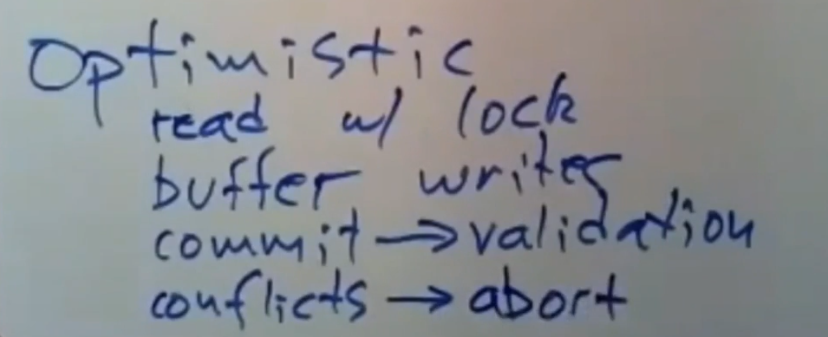 Optimistic
read w/ lock
buffer writes
commit → validation
conflicts → abort